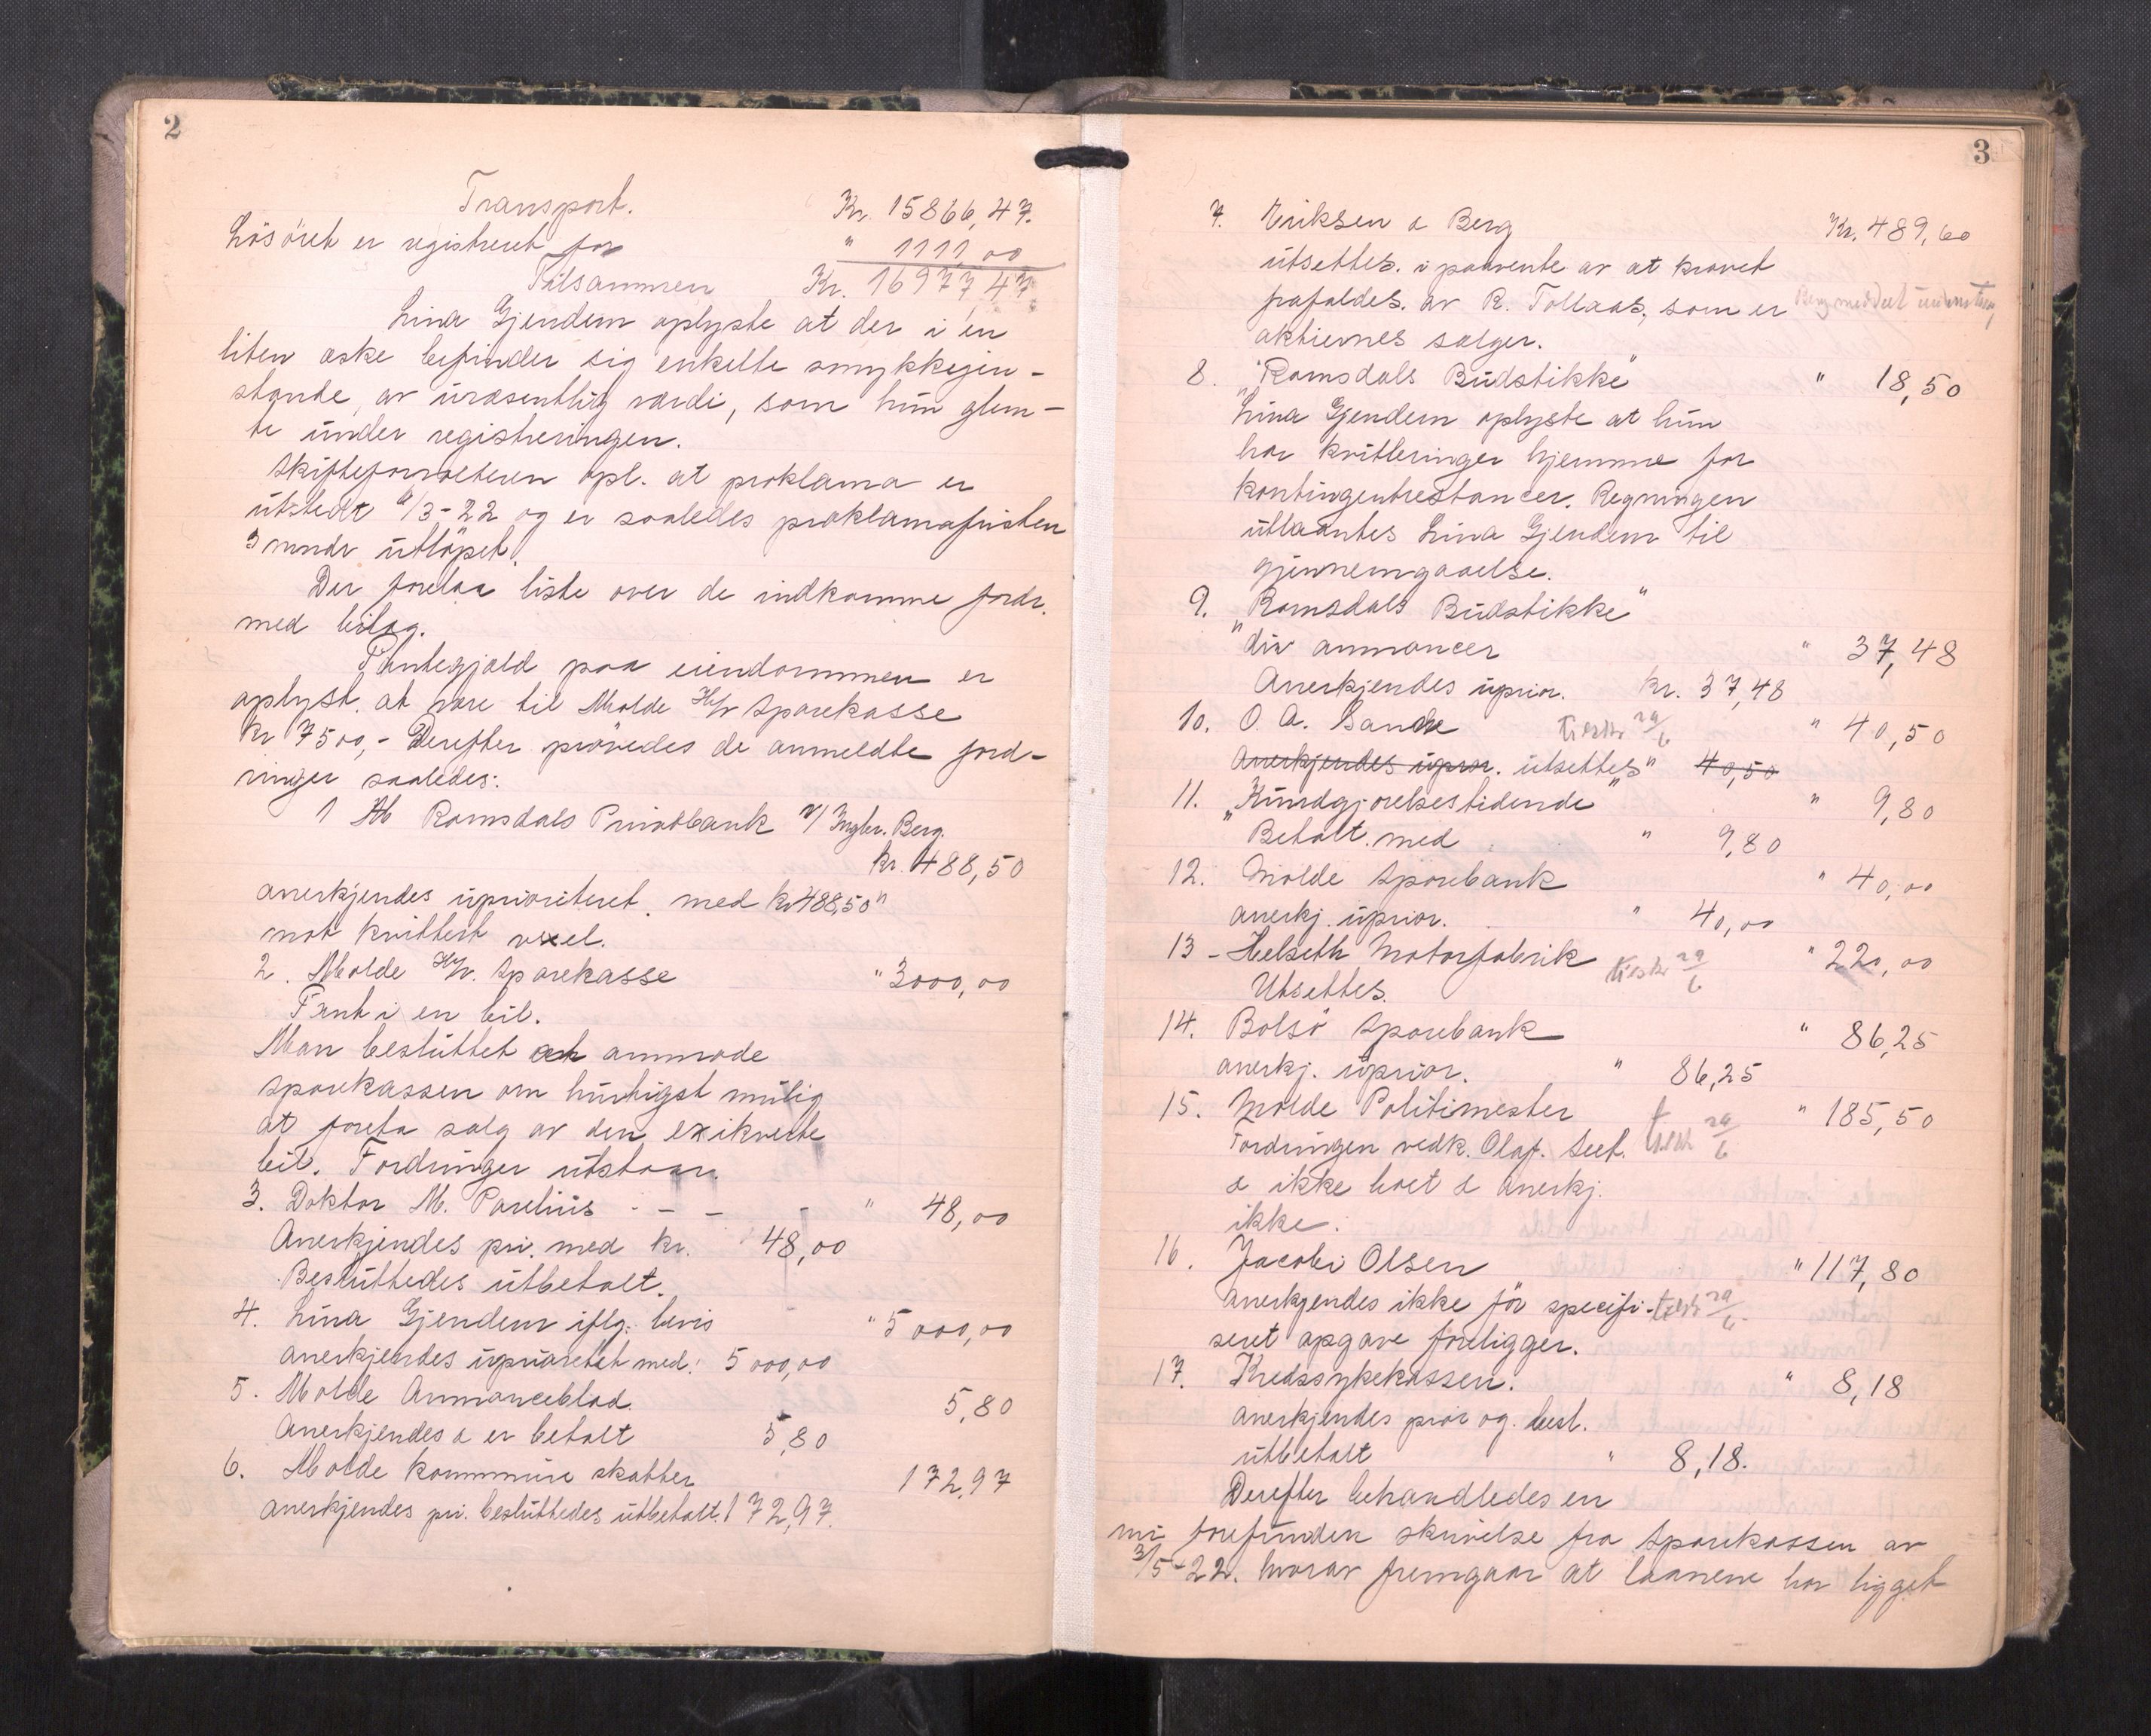 2
Transport. Kr. 15866,47.
Lösöret er registreret for " 1111,00
Tilsammen Kr. 16977,47.
Lina Gjendem oplyste at der i en
liten æske befinder sig enkelte smykkegjen-
stande, av uvæsentlig værdi, som hun glem-
te under registreringen.
Skifteforvalteren opl. at proklama er
utstedt /3-22 og er saaledes proklamafristen
3 mndr utløpet.
Der forelaa liste over de indkomne fordr.
med bilag.
Pantegjæld paa eiendommen er
oplyst. at være til Molde H/v Sparekasse
Kr 7500,- Derefter prövedes de anmeldte ford-
ringer saaledes:
1 A/S Romsdals Privatbank v/ Ingbr. Berg.
kr. 488,50
anerkjendes uprioriteret. med kr 488,50 "
mot kvittert vexel.
2. Molde H/v. Sparekasse " 3000,00
Pant i en bil.
Man besluttet at anmode
sparekassen om hurtigst mulig
at foreta salg av den exikverte
bil. Fordringer utstaar.
3. Doktor M. Parelius - - - - " 48,00
Anerkjendes pri. med kr. 48,00
Besluttedes utbetalt.
4. Lina Gjendem iflg. bevis " 5000,00
anerkjendes uprioretet med: 5000,00
5. Molde Annonceblad 5,80
Anerkjendes & er betalt 5,80
6. Molde kommune skatter 172,97
anerkjendes pri. besluttedes utbetalt. 172,97.
3
7. Eriksen & Berg Kr. 489,60
utsettes. i paavente av at kravet
frafaldes. av R. Tollaas, som er Berg meddelt
aktiernes sælger.
8. "Romsdals Budstikke" " 18,50
Lina Gjendem oplyste at hun
har kvitteringer hjemme for
kontingentrestancer. Regningen
utlaantes Lina Gjendem til
gjennemgaaelse.
9. "Romsdals Budstikke"
div annoncer " 37,48
Anerkjendes uprior. kr. 37,48
10. O. A. Sande tilskr 29/6 " 40,50
Anerkjendes uprior. utsettes " 40,50
11. "Kundgjørelsestidende" " 9,80
Betalt. med " 9,80
12. Molde Sparebank " 40,00
anerkj. uprior. " 40,00
13 - Helseth Motorfabrik tilskr 29/6 " 220,00
Utsettes.
14. Bolsö Sparebank " 86,25
anerkj. uprior. " 86,25
15. Molde Politimester " 185,50
Fordringen vedk. Olaf. Seet. tilskr 29/6
& ikke boet & anerkj.
ikke.
16. Jacobi Olsen " 117,80
Anerkjendes ikke för specifi- tilskr 29/6
seret opgave foreligger.
17. Kredssykekassen. " 8,18
anerkjendes prior og. besl.
utbetalt " 8,18.
Derefter behandledes en
nu forefunden skrivelse fra Sparekassen av
3/5-22. hvorav fremgaar at laanene har ligget